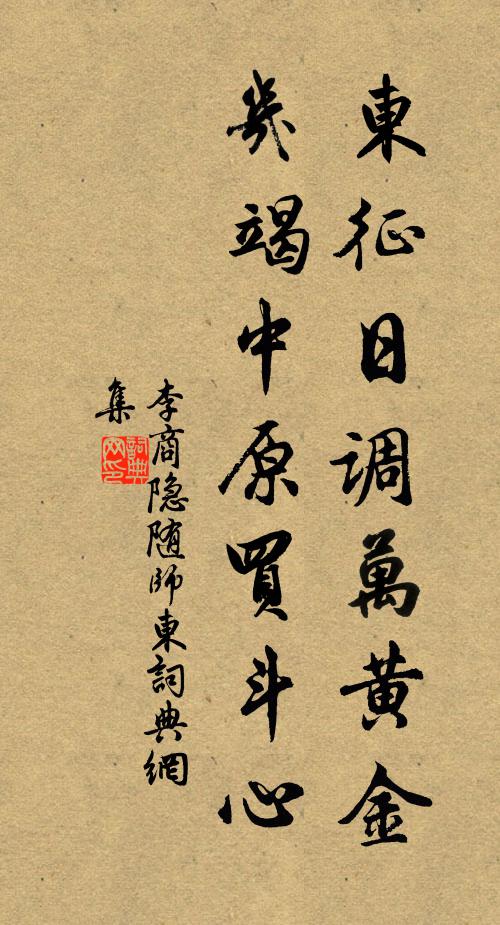 東征日調萬黄金
幾竭中原買斗心
李商隐随師東詞典網
集
詞典
网印